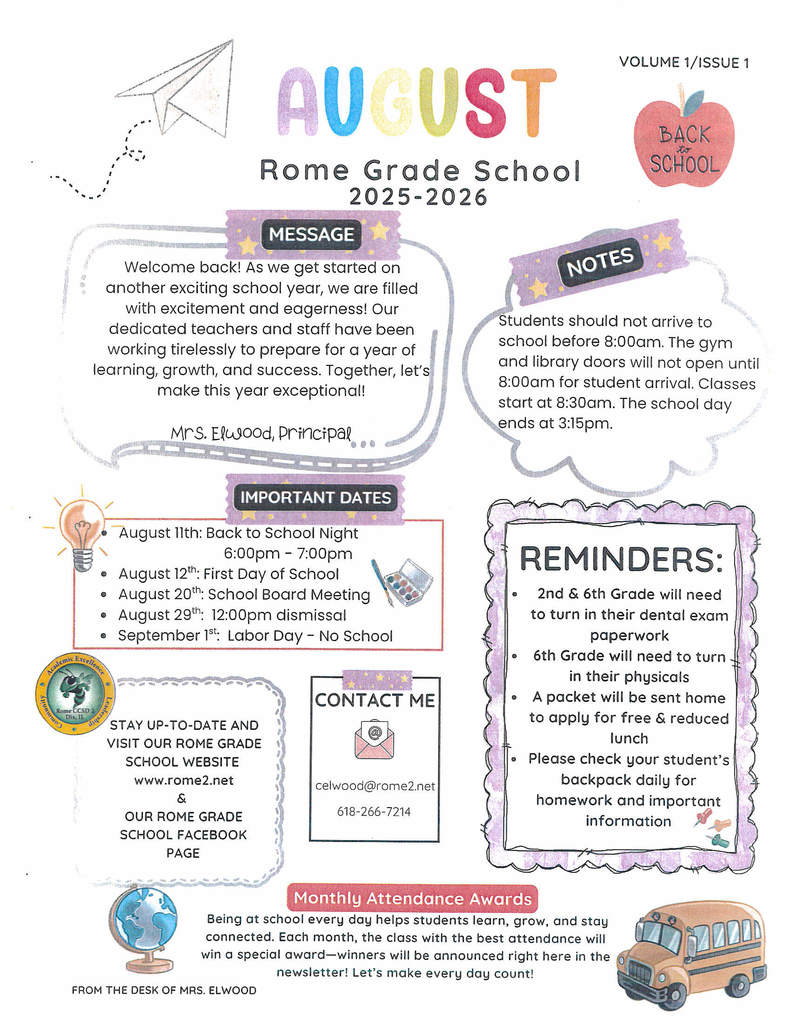 VOLUME 1/ISSUE 1
AUGUST
BACK
to
SCHOOL
Rome Grade School
2025-2026
MESSAGE
Welcome back! As we get started on
another exciting school year, we are filled
with excitement and eagerness! Our
dedicated teachers and staff have been
working tirelessly to prepare for a year of
learning, growth, and success. Together, let's
make this year exceptional!
Mrs. Elwood, Principal
NOTES
Students should not arrive to
school before 8:00am. The gym
and library doors will not open until
8:00am for student arrival. Classes
start at 8:30am. The school day
ends at 3:15pm.
IMPORTANT DATES
• August 11th: Back to School Night
6:00pm - 7:00pm
• August 12th: First Day of School
• August 20th: School Board Meeting
• August 29th: 12:00pm dismissal
• September 1st: Labor Day - No School
REMINDERS:
• 2nd & 6th Grade will need
to turn in their dental exam
paperwork
• 6th Grade will need to turn
in their physicals
• A packet will be sent home
to apply for free & reduced
lunch
• Please check your student's
backpack daily for
homework and important
information
Academic Excellence
Leadership
Community
Rome CCSD 2
Dix, IL
STAY UP-TO-DATE AND
VISIT OUR ROME GRADE
SCHOOL WEBSITE
www.rome2.net
&
OUR ROME GRADE
SCHOOL FACEBOOK
PAGE
CONTACT ME
@
celwood@rome2.net
618-266-7214
Monthly Attendance Awards
Being at school every day helps students learn, grow, and stay
connected. Each month, the class with the best attendance will
win a special award—winners will be announced right here in the
newsletter! Let's make every day count!
FROM THE DESK OF MRS. ELWOOD